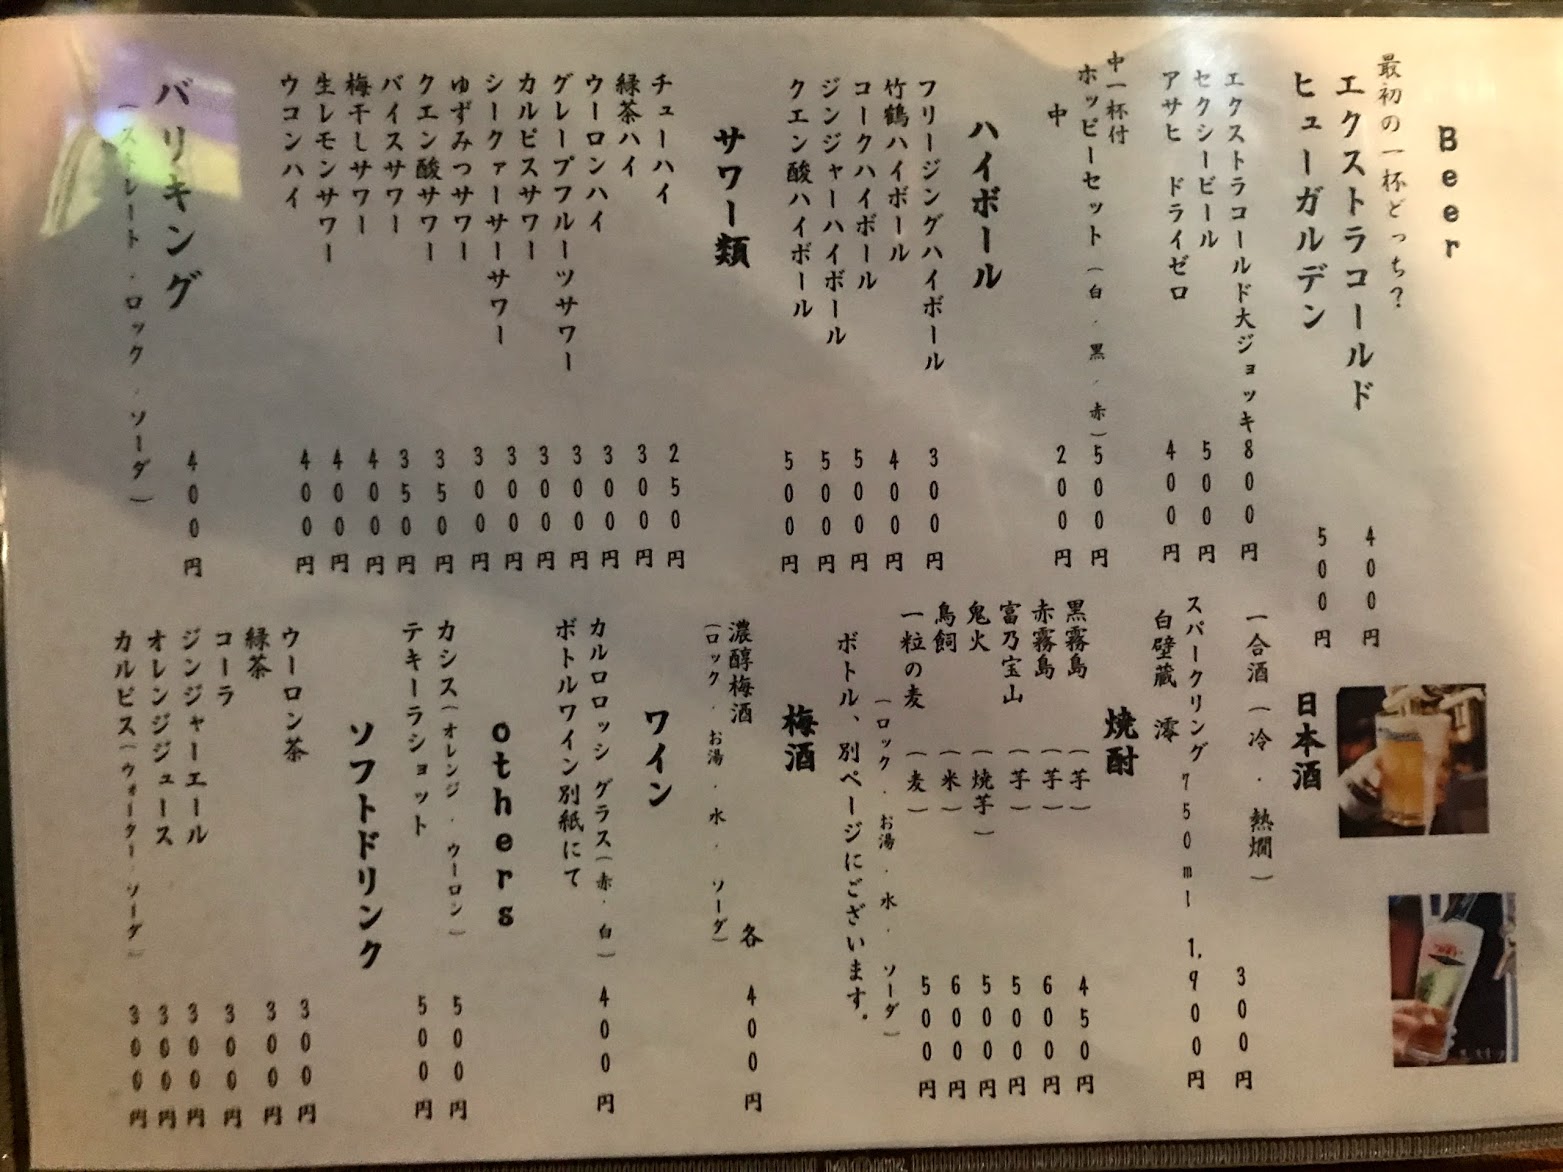 Beer
最初の一杯どっち?
エクストラコールド 400円
ヒューガルデン 500円
エクストラコールド大ジョッキ 800円
セクシービール 500円
アサヒ ドライゼロ 400円
中一杯付
ホッピーセット(白・黒・赤) 500円
中 200円
ハイボール
フリージングハイボール 300円
竹鶴ハイボール 400円
コークハイボール 500円
ジンジャーハイボール 500円
クエン酸ハイボール 500円
サワー類
チューハイ 250円
緑茶ハイ 300円
ウーロンハイ 300円
グレープフルーツサワー 300円
カルピスサワー 300円
シークァーサーサワー 300円
ゆずみつサワー 300円
クエン酸サワー 350円
バイスサワー 350円
梅干しサワー 400円
生レモンサワー 400円
ウコンハイ 400円
バリキング 400円
(ストレート・ロック・ソーダ)
日本酒
一合酒(冷・熱燗) 300円
スパークリング750ml 1,900円
白壁蔵 澪
焼酎
黒霧島 (芋) 450円
赤霧島 (芋) 600円
富乃宝山 (芋) 500円
鬼火 (焼芋) 500円
鳥飼 (米) 600円
一粒の麦 (麦) 500円
(ロック・お湯・水・ソーダ)
ボトル、別ページにございます。
梅酒
各400円
濃醇梅酒
(ロック・お湯・水・ソーダ)
ワイン
カルロロッシ グラス(赤・白) 400円
ボトルワイン別紙にて
others
カシス(オレンジ・ウーロン) 500円
テキーラショット 500円
ソフトドリンク
ウーロン茶 300円
緑茶 300円
コーラ 300円
ジンジャーエール 300円
オレンジジュース 300円
カルピス(ウォーター・ソーダ) 300円